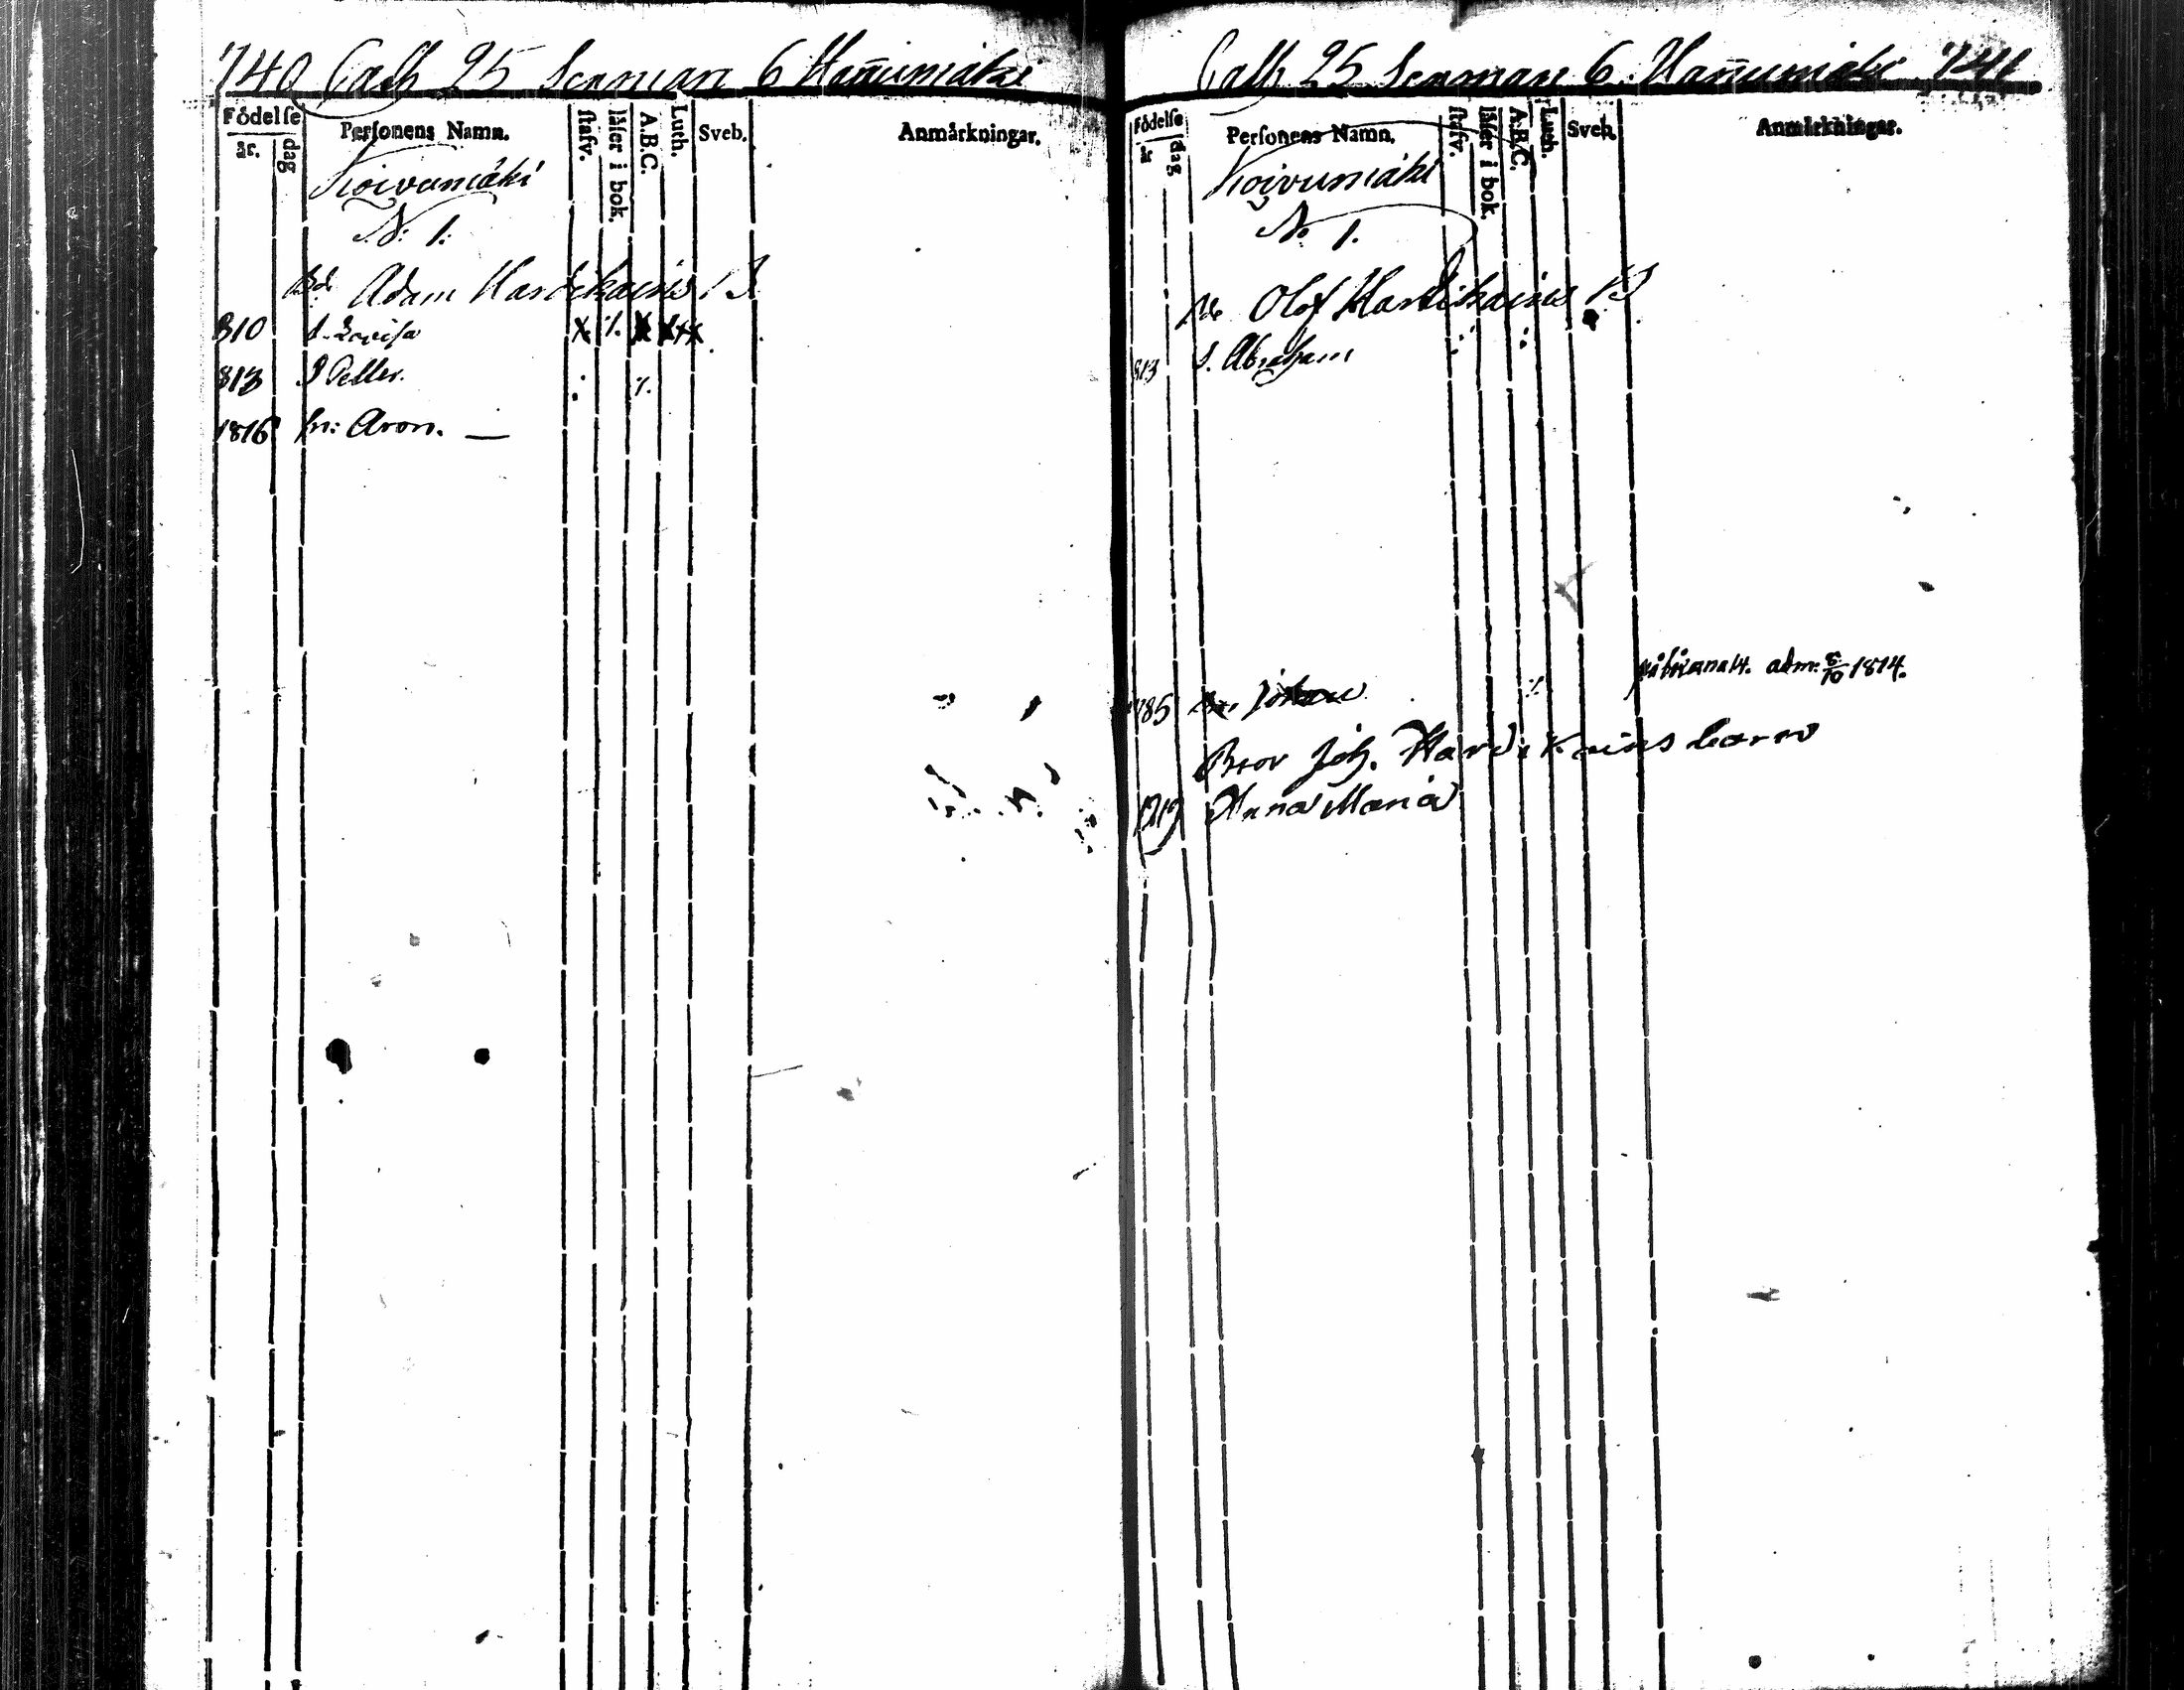 740 Cath 25 Senman 6 Hañumäki
Födelse
år.
dag
Personens Namn.
stafv.
läser i bok.
A.B.C.
Luth.
Sveb.
Anmärkningar.
Koivumäki
N: 1:
Bd Adam Hardikains B
810 d. Lovisa
813 S Petter.
1816 Aron. —
Cath 25 Senman 6 Hañumäki 741
Födelse
år
dag
Personens Namn.
stafv.
läser i bok.
A.B.C.
Luth.
Sveb.
Anmärkningar.
Koivumäki
N: 1.
Olof Hardikaines B
813 S. Abraham
adm: 8/10 1814.
785 Johan
Bror Joh. Hardikains barn
Anna Maria